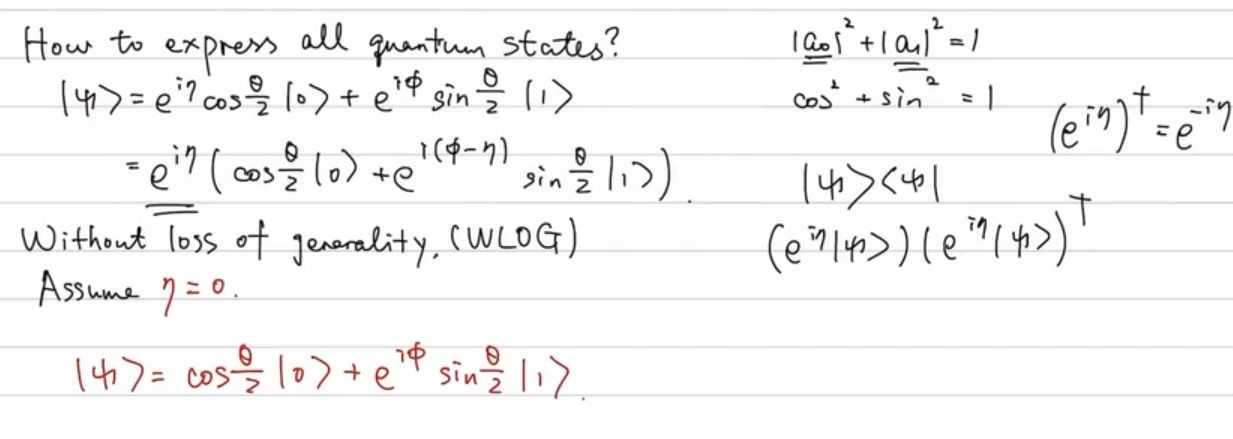 How to express all quantum states?
|ψ⟩ = e^{iη} cos θ/2 |0⟩ + e^{iϕ} sin θ/2 |1⟩
= e^{iη} ( cos θ/2 |0⟩ + e^{i(ϕ-η)} sin θ/2 |1⟩ ).
Without loss of generality, (WLOG)
Assume η = 0.
|ψ⟩ = cos θ/2 |0⟩ + e^{iϕ} sin θ/2 |1⟩.
|a₀|² + |a₁|² = 1
cos² + sin² = 1
(e^{iη})† = e^{-iη}
|ψ⟩⟨ψ|
(e^{iη}|ψ⟩)(e^{iη}|ψ⟩)†